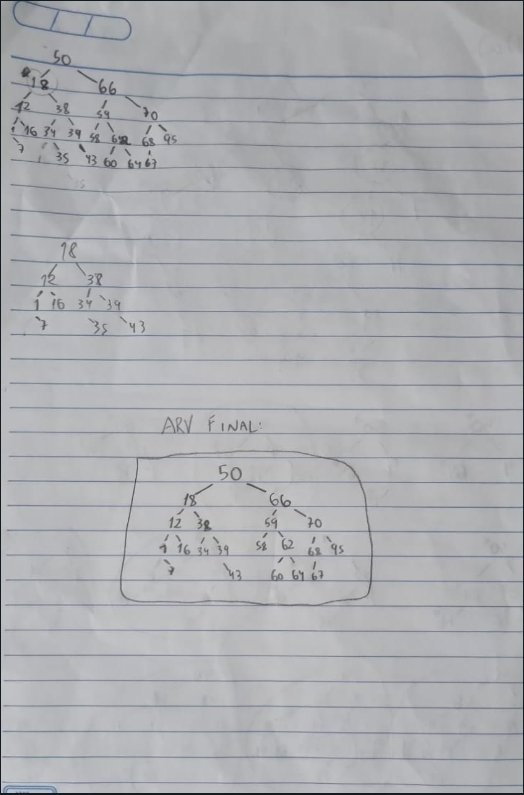 50
18 66
12 38 59 70
1 16 34 39 58 62 68 95
7 35 43 60 64 67
18
12 38
1 16 34 39
7 35 43
ARV FINAL:
50
18 66
12 38 59 70
1 16 34 39 58 62 68 95
7 43 60 64 67